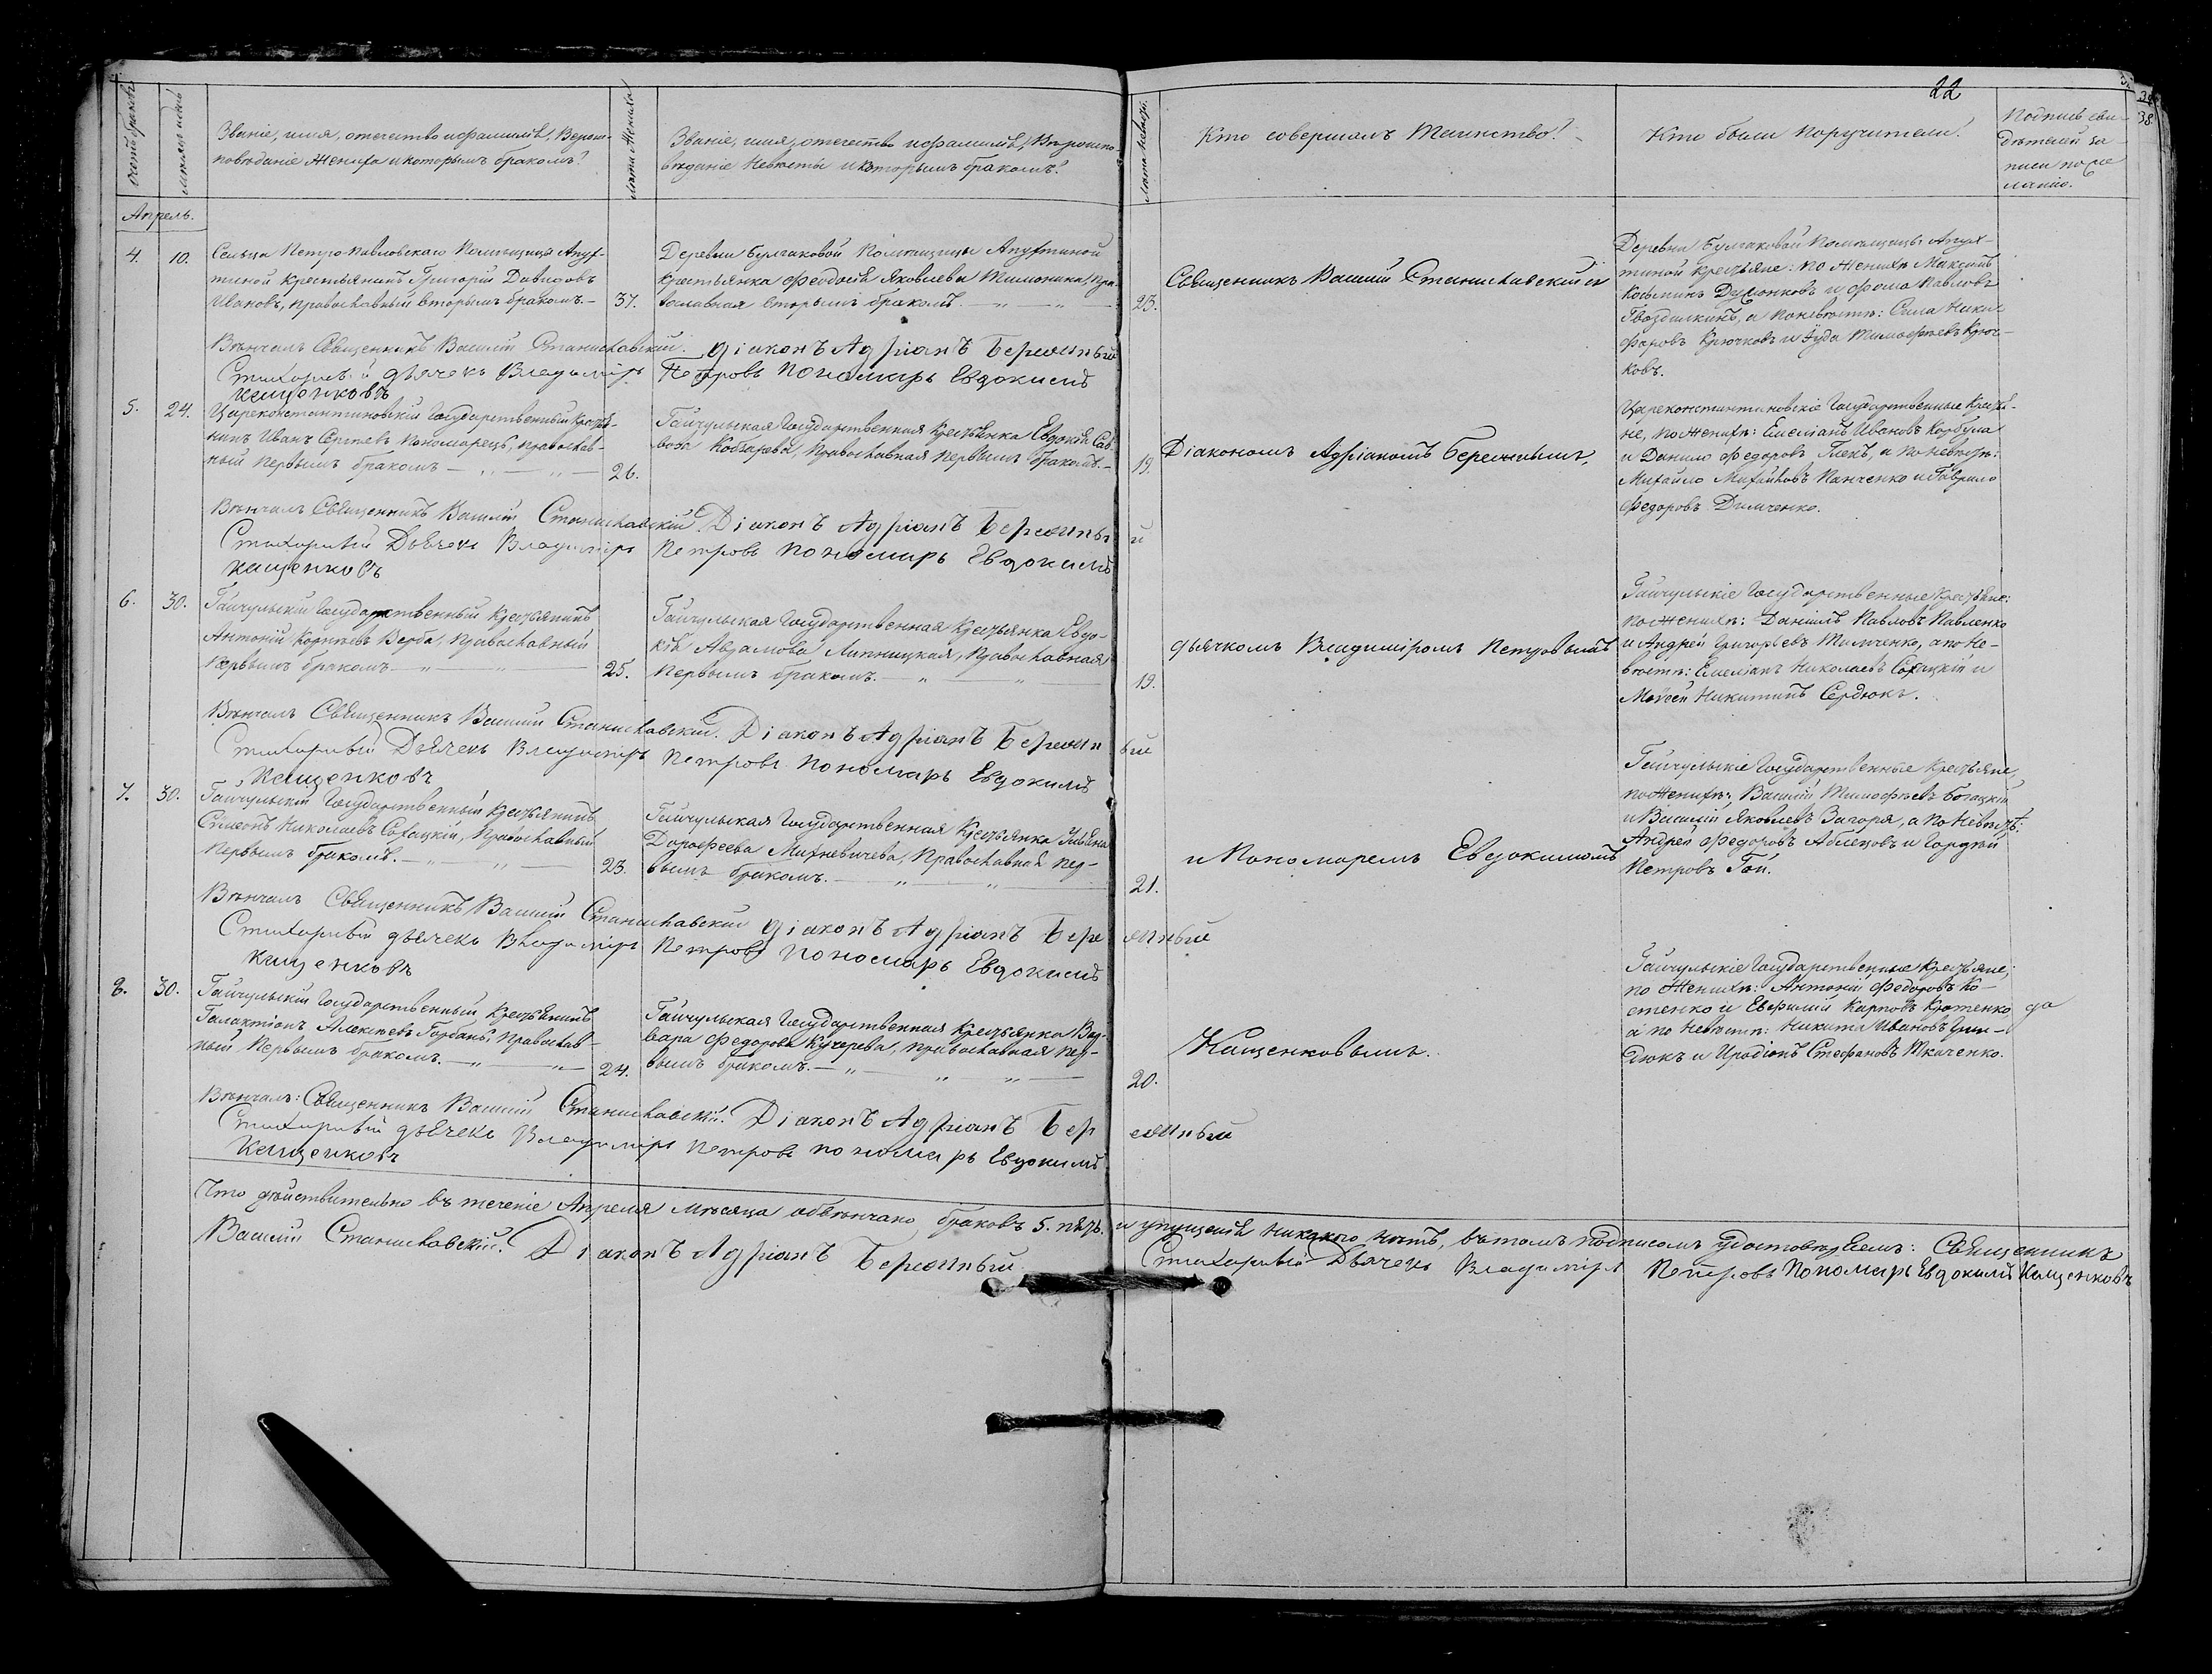 22
38
Счетъ браковъ
Мѣсяцъ и день
Званіе, имя, отечество и фамилія, Вероис-
повѣданіе Жениха и которымъ бракомъ?
Лѣта Жениха
Званіе, имя, отечество и фамилія, Вѣроиспо-
вѣданіе Невѣсты и которымъ бракомъ?
Лѣта Невѣсты.
Кто совершалъ Таинство?
Кто были поручители?
Подпись сви-
дѣтелей за-
писи по же
ланію.
Апрель.
4.
10.
Сельца Петро-Павловскаго Помѣщицы Апух-
тиной крестьянинъ Григорій Давидовъ
Ивановъ, православный вторымъ бракомъ —
37.
Деревни Булгаковой Помѣщицы Апухтиной
крестьянка Феодосія Яковлева Тимонина, Пра
вославная вторымъ бракомъ. — „ — „ —
23.
Священникъ Василій Станиславскій съ
Деревни Булгаковой Помѣщицы Апух-
тиной крестьяне: по Женихѣ Максимъ
Косминъ и Фома Павловъ
Гвоздилкинъ, а по невѣстѣ: Сила Ники-
форовъ Крючковъ и Іуда Тимофѣевъ Крюч-
ковъ.
Вѣнчалъ Священникъ Василій Станиславскій. Діаконъ Адріанъ Бережный
Стихарный дьячекъ Владиміръ Петровъ Пономарь Евдокимъ
Кащенковъ
5.
24.
Цареконстантиновскій Государственный крестья-
нинъ Иванъ Сергѣевъ Пономарецъ, православ-
ный первымъ бракомъ — „ — „ —
26.
Гайчульская Государственная крестьянка Евдокія Сав-
вова Кобзарева, Православная первымъ бракомъ. —
19.
Діакономъ Адріаномъ Бережнымъ,
Цареконстантиновскіе Государственные крестья-
не, по Женихѣ: Емеліанъ Ивановъ Корбула
и Данило Федоровъ Глекъ, а по невѣстѣ:
Михайло Михайловъ Панченко и Гаврило
Федоровъ Димченко.
Вѣнчалъ Священникъ Василій Станиславскій. Діаконъ Адріанъ Бережный
Стихарный Дьячекъ Владиміръ Петровъ Пономарь Евдокимъ
Кащенковъ
6.
30.
Гайчульскій Государственный крестьянинъ
Антоній Корнѣевъ Верба, Православный
первымъ бракомъ. — „ — „ —
25.
Гайчульская Государственная крестьянка Евдо-
кія Авдамова Липницкая, Православная
первымъ бракомъ. — „ — „ —
19.
дьячкомъ Владиміромъ Петровымъ
Гайчульскіе Государственные крестьяне:
по Женихѣ: Даніилъ Павловъ Павленко
и Андрей Григорьевъ Тимченко, а по Не-
вѣстѣ: Емеліанъ Николаевъ Сохацкій и
Мовсей Никитинъ Сердюкъ.
Вѣнчалъ Священникъ Василій Станиславскій. Діаконъ Адріанъ Бережный
Стихарный Дьячекъ Владиміръ Петровъ Пономарь Евдокимъ
Кащенковъ
7.
30.
Гайчульскій Государственный крестьянинъ
Симеонъ Николаевъ Сохацкій, Православный
первымъ бракомъ. — „ — „ —
23.
Гайчульская Государственная крестьянка Уліяна
Дорофеева Михневичева, Православная пер-
вымъ бракомъ. — „ — „ —
21.
и Пономаремъ Евдокимомъ
Гайчульскіе Государственные крестьяне,
по Женихѣ: Василій Тимофѣевъ Богацкій
и Василій Яковлевъ Загоря, а по Невѣстѣ:
Андрей Федоровъ Аблецовъ и Гордѣй
Петровъ Гой.
Вѣнчалъ Священникъ Василій Станиславскій Діаконъ Адріанъ Бережный
Стихарный дьячекъ Владиміръ Петровъ Пономарь Евдокимъ
Кащенковъ
8.
30.
Гайчульскій Государственный крестьянинъ
Галактіонъ Алексѣевъ Горбань, православ-
ный первымъ бракомъ. — „ — „ —
24.
Гайчульская Государственная крестьянка Вар-
вара Федорова Кучерева, православная пер-
вымъ бракомъ. — „ — „ — „ —
20.
Кащенковымъ.
Гайчульскіе Государственные крестьяне;
по Женихѣ: Антоній Федоровъ Ко-
стенко и Евфимій Карповъ Кротенко
а по Невѣстѣ: Никита Ивановъ Грин-
дюкъ и Иродіонъ Стефановъ Ткаченко.
да
Вѣнчалъ: Священникъ Василій Станиславскій. Діаконъ Адріанъ Бережный
Стихарный дьячекъ Владиміръ Петровъ Пономарь Евдокимъ
Кащенковъ
Что дѣйствительно въ теченіе Апреля мѣсяца обвѣнчано браковъ 5. пять. и упущенія никакого нѣтъ, въ томъ подписомъ удостовѣряемъ: Священникъ
Василій Станиславскій. Діаконъ Адріанъ Бережный Стихарный Дьячекъ Владиміръ Петровъ Пономарь Евдокимъ Кащенковъ